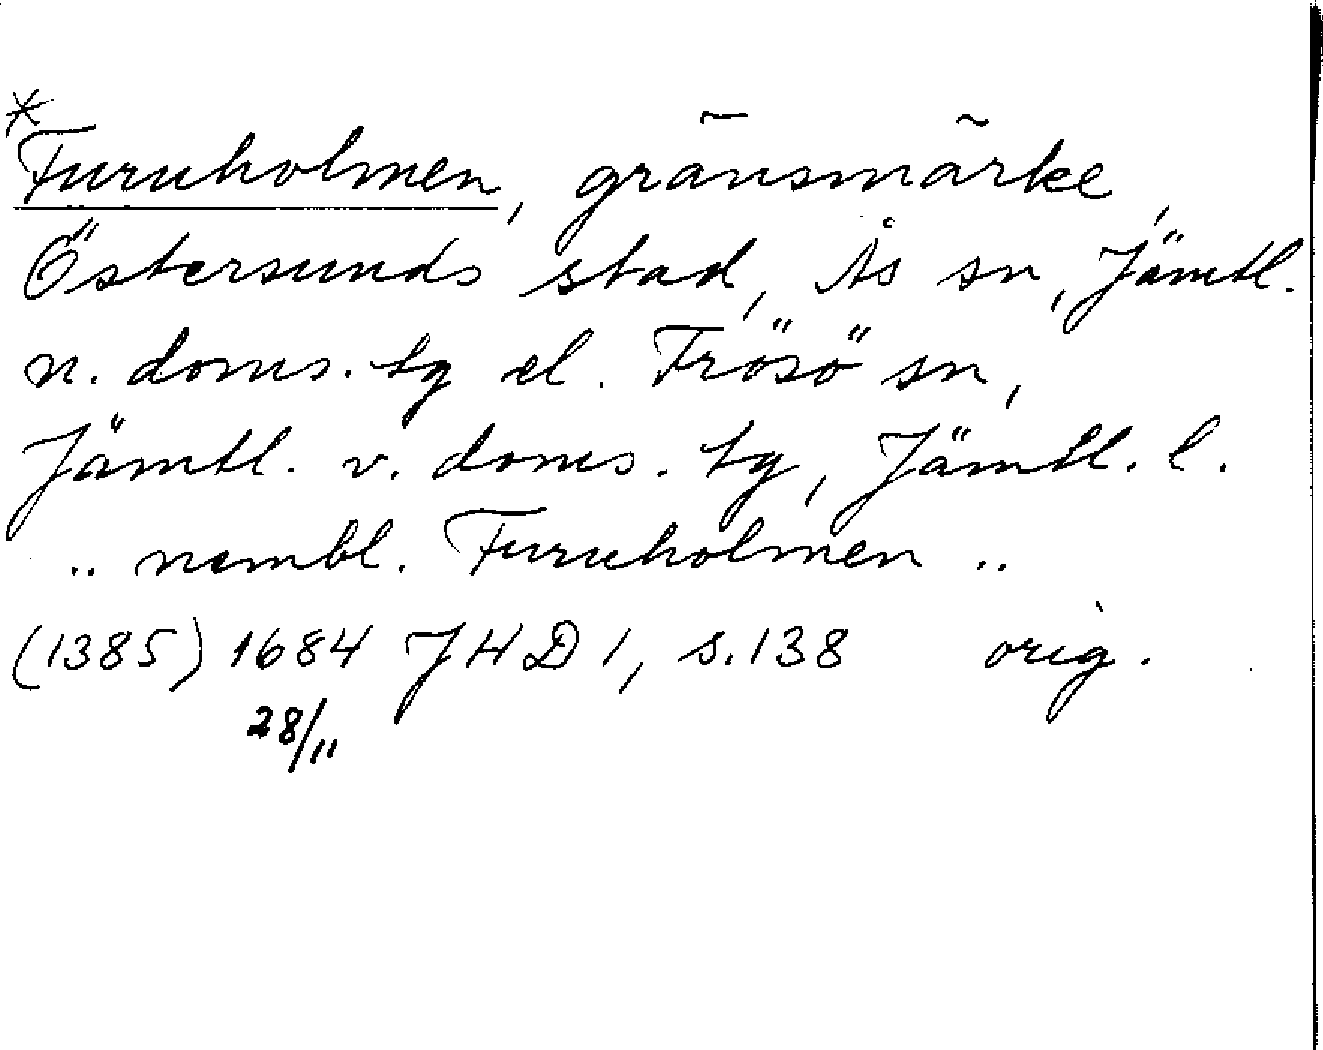 *
Furuholmen, gränsmärke,
Östersunds stad, Ås sn, Jämtl.
n. doms. tg el. Frösö sn,
Jämtl. v. doms. tg, Jämtl. l.
.. nembl. Furuholmen ..
(1385) 1684 JHD 1, s. 138 orig.
28/11